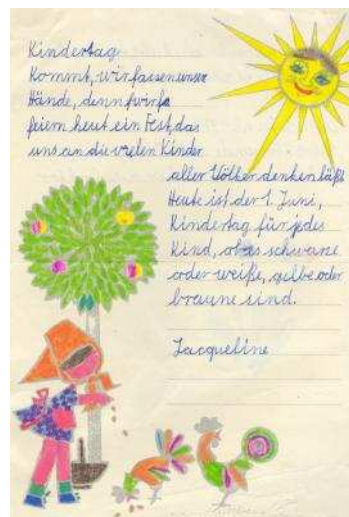 Kindertag
Kommt, wir fassen unsre
Hände, denn wir
feiern heut ein Fest, das
uns an die vielen Kinder
aller Völker denken läßt
Heute ist der 1. Juni,
Kindertag für jedes
Kind, ob es schwarze
oder weiße, gelbe oder
braune sind.
Jacqueline